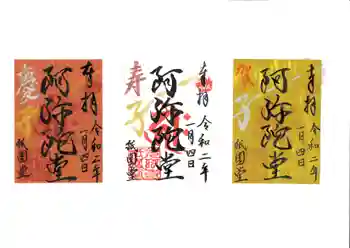 奉拝
令和二年
一月四日
阿弥陀堂
慶
祇園堂
奉拝
令和二年
一月四日
阿弥陀堂
寿
祇園堂
奉拝
令和二年
一月四日
阿弥陀堂
祝
祇園堂